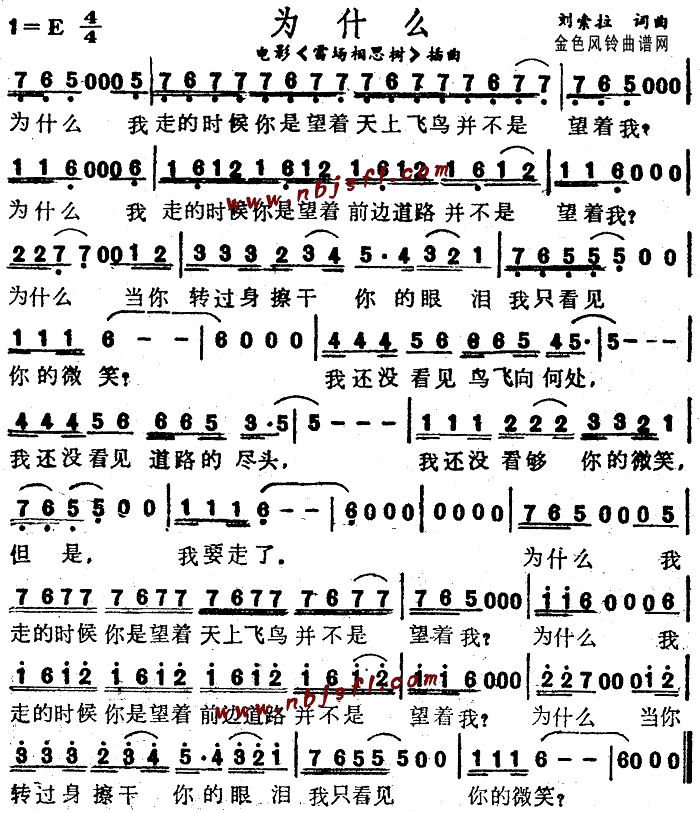 1=E 4/4 为什么 刘索拉 词曲
电影《雷场相思树》插曲 金色风铃曲谱网
7 6 5 0 0 0 5 | 7 6 7 7 7 6 7 7 7 6 7 7 7 6 7 7 | 7 6 5 0 0 0
为什么 我 走的时候 你是望着 天上飞鸟 并不是 望着我?
1 1 6 0 0 0 6 | 1 6 1 2 1 6 1 2 1 6 1 2 1 6 1 2 | 1 1 6 0 0 0
为什么 我 走的时候 你是望着 前边道路 并不是 望着我?
www.nbjsfl.com
2 2 7 7 0 0 1 2 | 3 3 3 2 3 4 5 · 4 3 2 1 | 7 6 5 5 5 0 0
为什么 当你 转过身 擦干 你 的眼 泪 我只看见
1 1 1 6 - - | 6 0 0 0 | 4 4 4 5 6 6 6 5 4 5 · | 5 - - -
你的微 笑? 我还没 看见 鸟飞向 何处,
4 4 4 5 6 6 6 5 3 · 5 | 5 - - - | 1 1 1 2 2 2 3 3 2 1
我还没 看见 道路的 尽头, 我还没 看够 你的微笑,
7 6 5 5 0 0 | 1 1 1 6 - | 6 0 0 0 | 0 0 0 0 | 7 6 5 0 0 0 5
但 是, 我要走了. 为什么 我
7 6 7 7 7 6 7 7 7 6 7 7 7 6 7 7 | 7 6 5 0 0 0 | 1 1 6 0 0 0 6
走的时候 你是望着 天上飞鸟 并不是 望着我? 为什么 我
1 6 1 2 1 6 1 2 1 6 1 2 1 6 1 2 | 1 1 6 0 0 0 | 2 2 7 0 0 0 1 2
走的时候 你是望着 前边道路 并不是 望着我? 为什么 当你
www.nbjsfl.com
3 3 3 2 3 4 5 · 4 3 2 1 | 7 6 5 5 5 0 0 | 1 1 1 6 - - | 6 0 0 0
转过身 擦干 你 的眼 泪 我只看见 你的微笑?